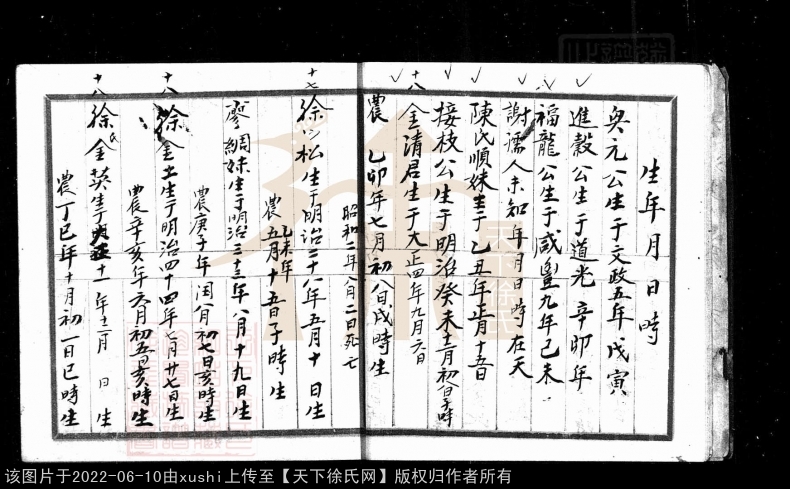 生年月日時
奐元公生于文政五年戊寅
進穀公生于道光辛卯年
福龍公生于咸豐九年己未
謝孺人未知年月日時在天
陳氏順妹生于乙丑年正月十五日
接枝公生于明治癸未十二月初八日子時
十八 金清君生于大正四年九月六日
農 乙卯年七月初八日戌時生
昭和二年八月二日死亡
十七 徐 松生于明治二十八年五月十日生
乙未年
農五月十五日子時生
廖綢妹生于明治三十三年八月十九日生
農庚子年閏八月初七日亥時生
十八 徐金土生于明治四十四年七月廿七日生
農辛亥年六月初五日亥時生
十八 徐氏金英生于大正十一年十二月 日生
農丁巳年十月初一日巳時生
天下徐氏
该图片于2022-06-10由xushi上传至【天下徐氏网】版权归作者所有